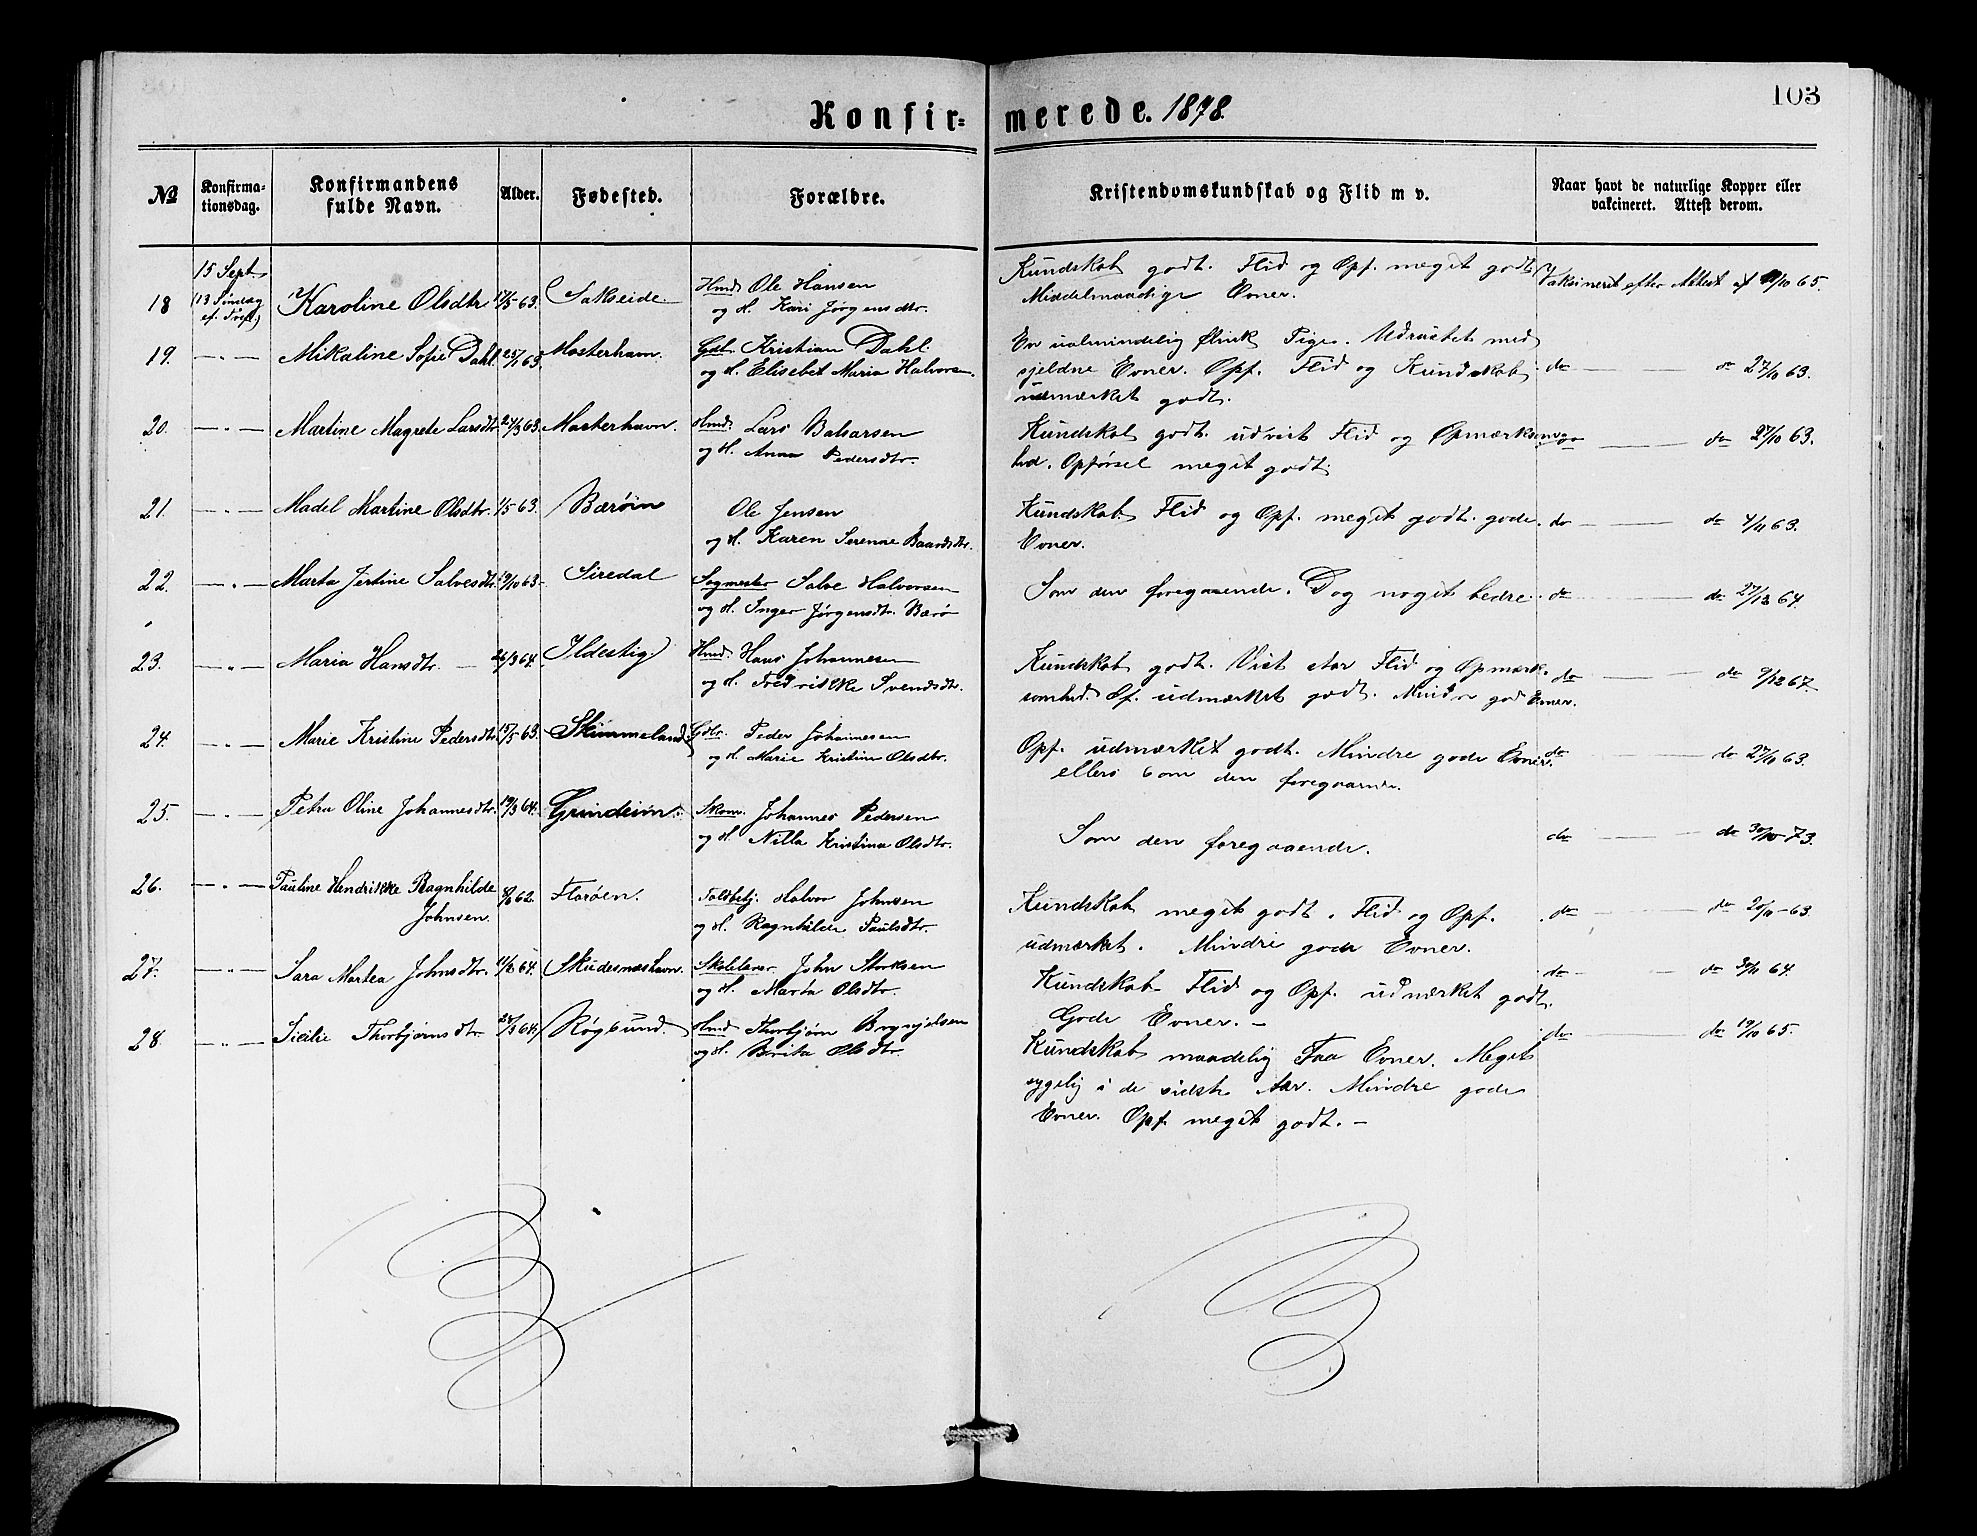 103
Konfir= merede. 1878.
№ Konfirma- Konfirmandens Alder. Fødested. Forældre. Kristendomskundskab og Flid m v. Naar havt de naturlige Kopper eller
tionsdag. fulde Navn. vakcineret. Attest derom.
15 Sept.
18 (13 Søndag Karoline Olsdtr 63. Sakseide. Hmd. Ole Hansen Kundskab godt. Flid og Opf. meget godt Vaksineret efter Attest af 65.
ef. Tref.) og H. Kari Jørgensdtr. Middelmaadige Evner.
19. —"— Mikaline Sofie Dahl 63. Mosterhavn. Gdbr. Kristian Dahl. En ualmindelig flink Pige. Udrustet med
og H. Elisebet Maria Halvors. sjeldne Evner. Opf. Flid og Kundskab do — do 27/10 63.
udmærket godt.
20. —"— Martine Magrete Larsdtr. 63. Mosterhavn. Hmd. Lars Balsarsen Kundskab godt. udvist Flid og Opmærksom- do — do 27/10 63.
og H. Anna Pedersdtr. hed. Opførsel meget godt.
21. —"— Madel Martine Olsdtr. 1/5 63. Bærøin Ole Jensen Kundskab Flid og Opf. meget godt. gode do — do 63.
og H. Karen Serenne Baardsdtr. Evner.
22. —"— Marta Jertine Salvesdtr. 19/10 63. Siredal Sagmester Salve Halvorsen Som den foregaaende. Dog noget bedre do — do 64.
og H. Inger Jørgensdtr. Bærø
23. —"— Maria Hansdtr. — 26/3 64. Ildestig Hmd. Hans Johannesen Kundskab godt. Vist stor Flid og Opmærk- do — do 9/12 67
og H. Fredrikke Svendsdtr. somhed. Of. udmærket godt. Mindre god Evner.
24. —"— Marie Kristine Pedersdtr. 15/5 63. Skimmeland Gdbr. Peder Johannesen Opf. udmærket godt. Mindre gode Evner. do — do 27/10 63.
og H. Marie Kristine Olsdtr. ellers som den foregaaende.
25. —"— Petra Oline Johannesdtr. 19/3 64. Grindeim. Skom. Johannes Pedersen Som den foregaaende. do — do 73.
og H. Nilla Kristina Olsdtr.
26. —"— Pauline Hendrikke Ragnhilde 62. Florøen. Toldbetj. Halvor Johnsen Kundskab meget godt. Flid og Opf. do — do 63.
Johnsen. og H. Ragnhilde Paulsdtr. udmærket. Mindre gode Evner.
27. —"— Sara Martea Johnsdtr. 64. Skudesnæshavn. Skolelærer John Storksen Kundskab Flid og Opf. udmærket godt. do — do 64.
og H. Marta Olsdtr. Gode Evner. —
28. —"— Sicilie Thorbjørnsdtr. 64 Røgsund. Hmd. Thorbjørn Brynjelsen Kundskab maadelig Faa Evner. Meget do — do 19/10 65.
og H. Brita Olsdtr. sygelig i de sidste Aar. Mindre gode
Evner. Opf. meget godt. —